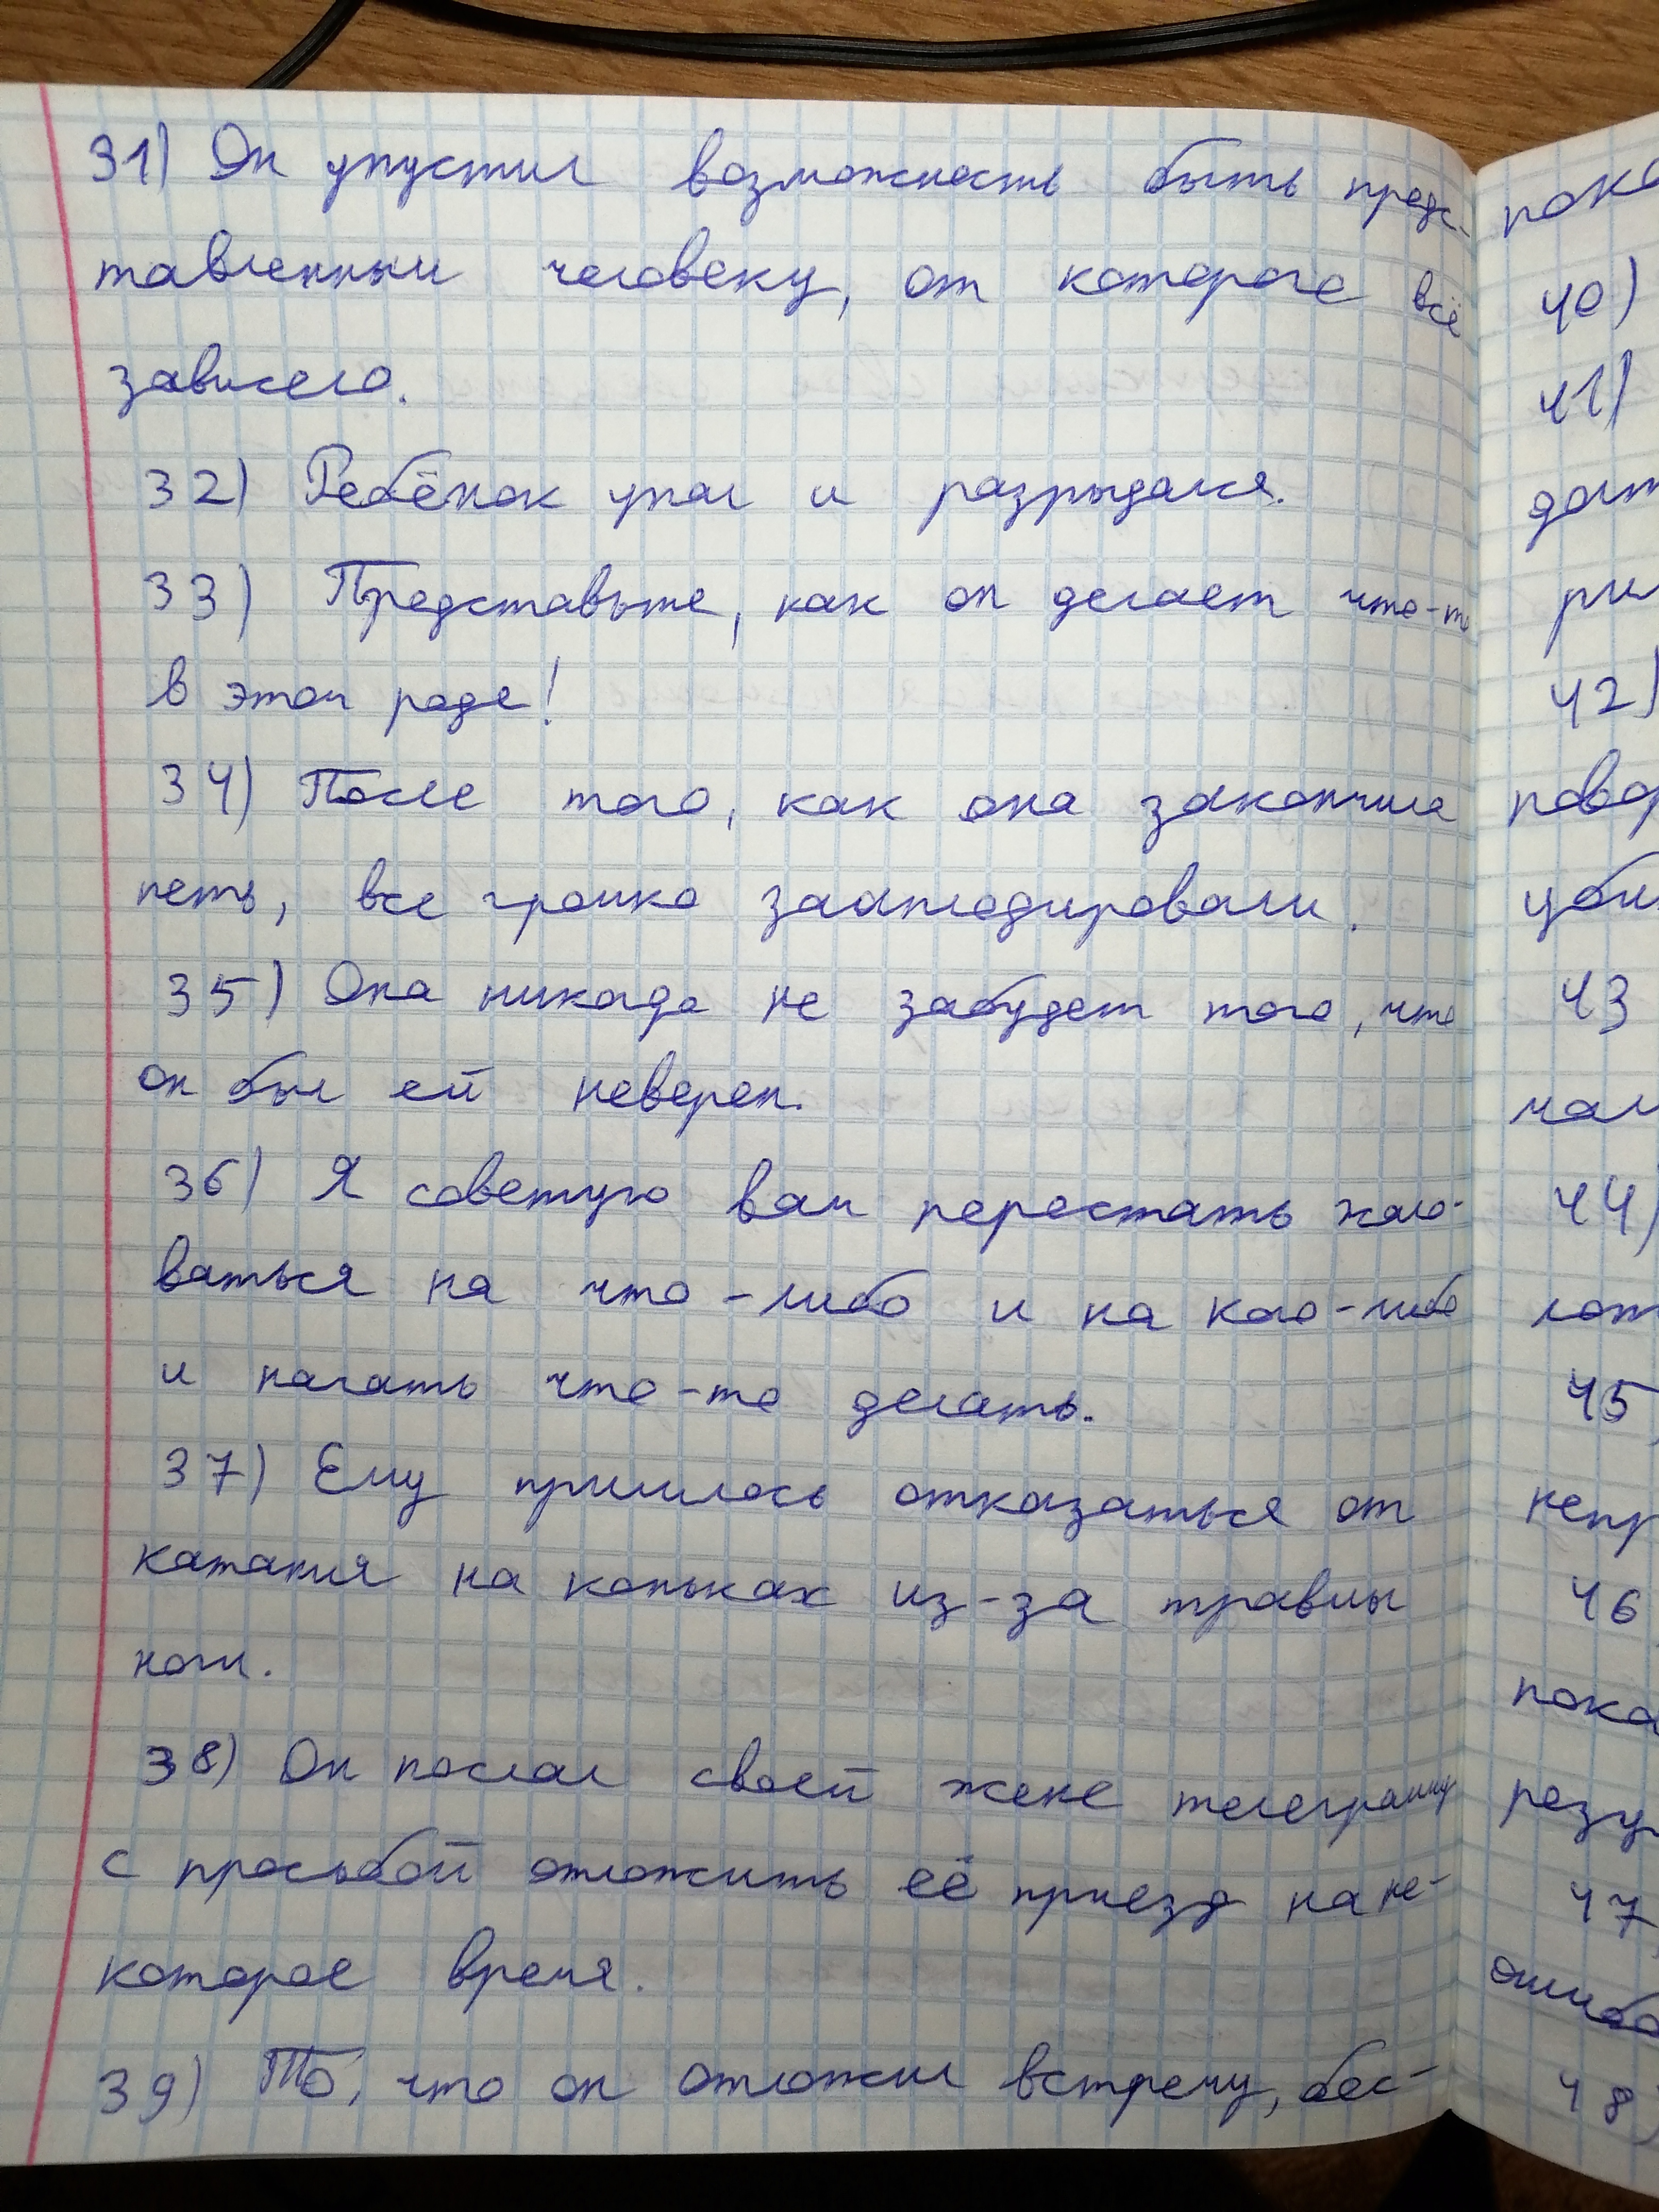 31) Он упустил возможность быть предс-
тавленным человеку, от которого всё
зависело.
32) Ребёнок упал и разрыдался.
33) Представьте, как он делает что-то
в этом роде!
34) После того, как она закончила
петь, все громко зааплодировали.
35) Она никогда не забудет того, что
он был ей неверен.
36) Я советую вам перестать жало-
ваться на что-либо и на кого-либо
и начать что-то делать.
37) Ему пришлось отказаться от
катания на коньках из-за травмы
ноги.
38) Он послал своей жене телеграмму
с просьбой отложить её приезд на не-
которое время.
39) То, что он отложил встречу, бес-
40)
41)
42)
43
44)
45
46
пока
47
48)